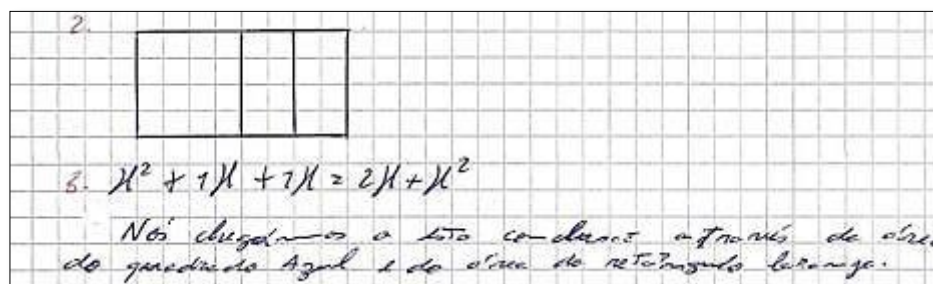 2.
3. x² + 1x + 1x = 2x + x²
Nós chegamos a esta conclusão através da área
do quadrado Azul e da área do retângulo laranja.